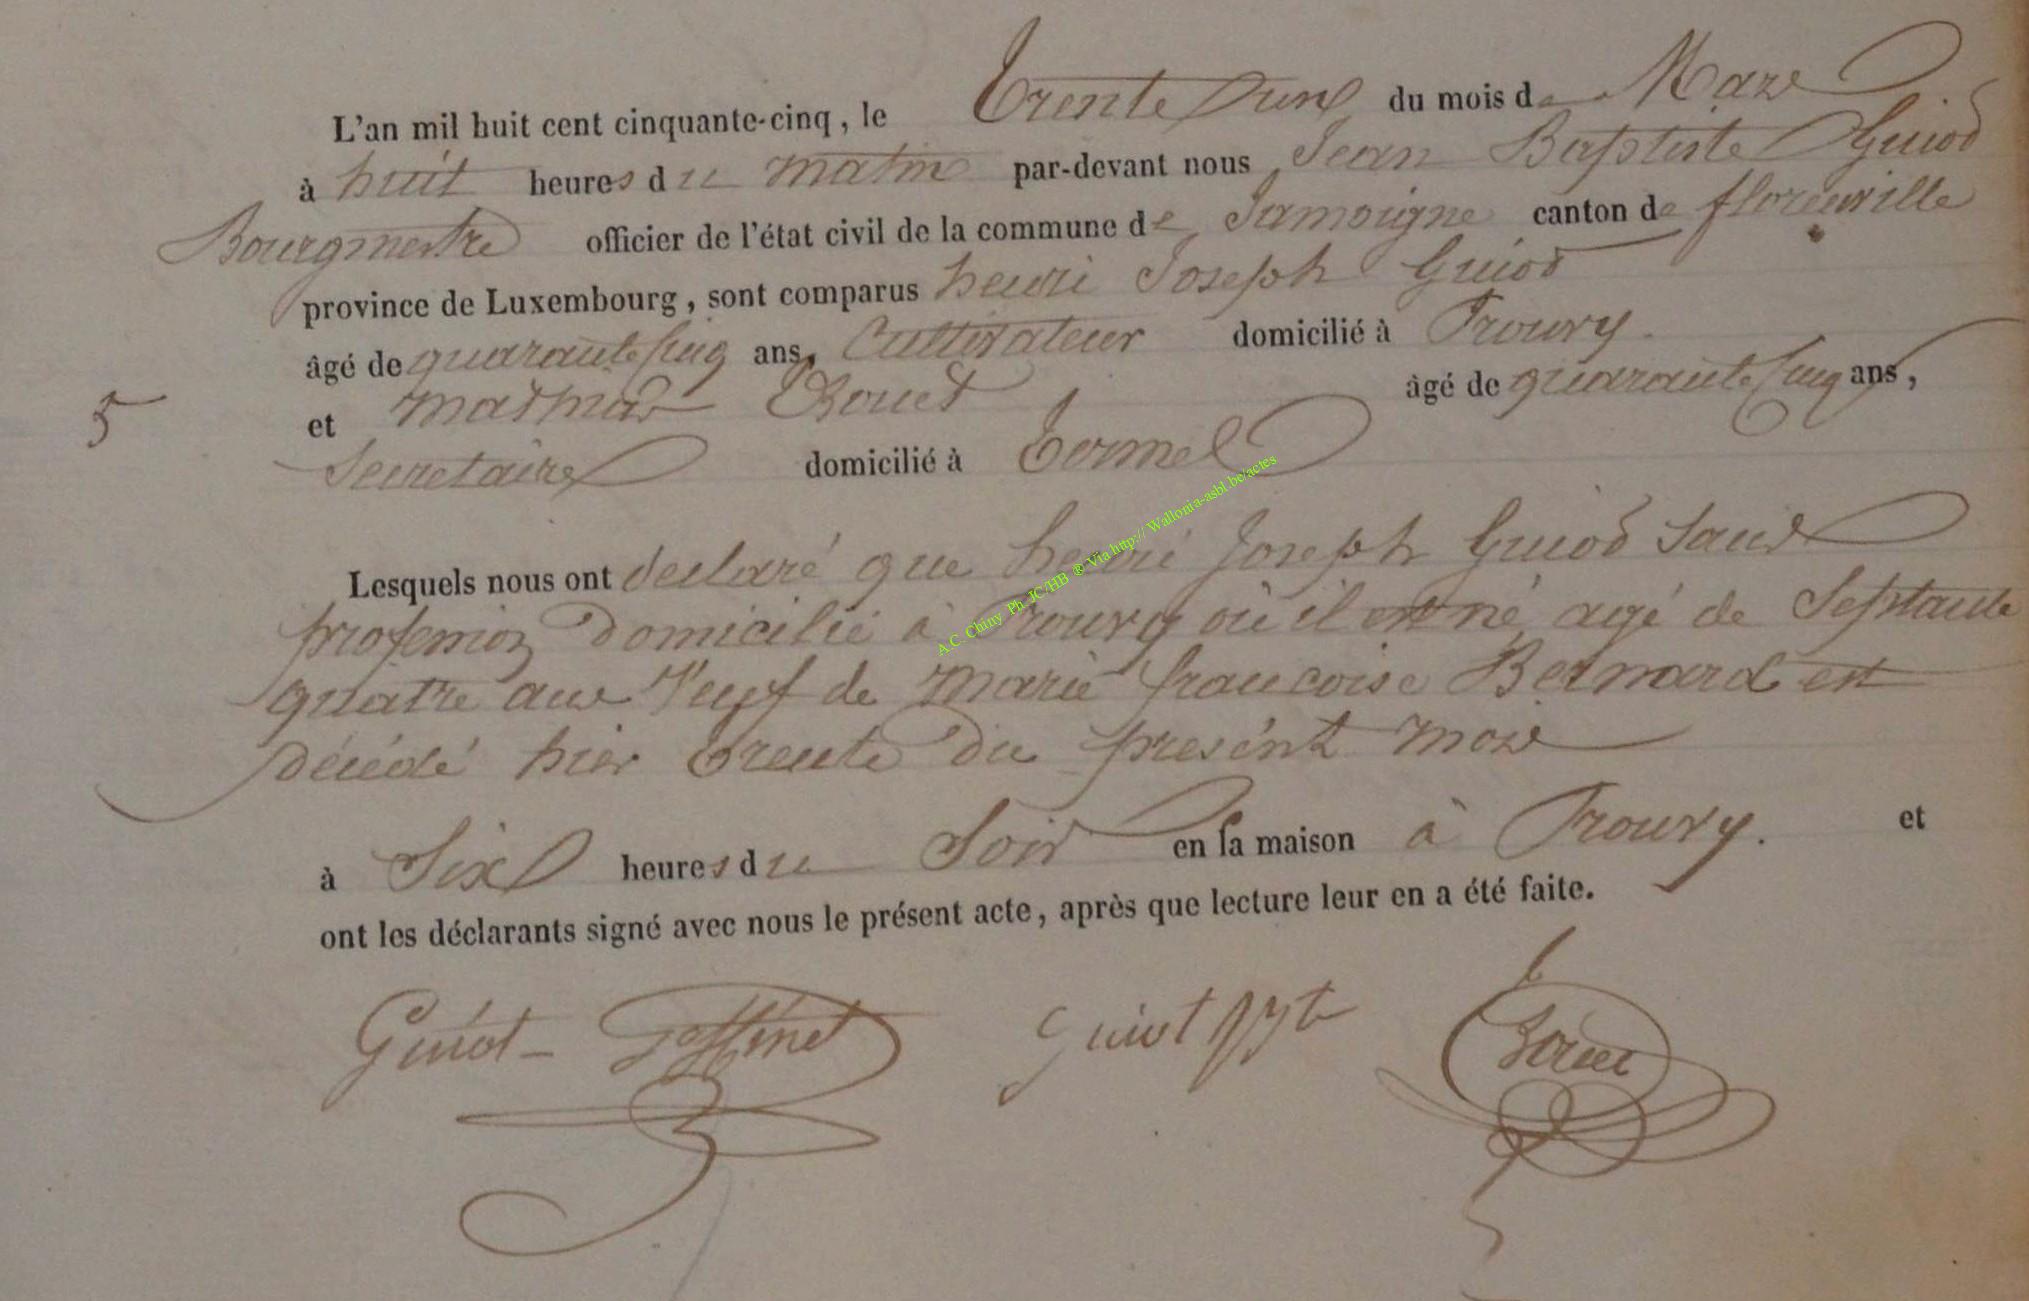 L'an mil huit cent cinquante-cinq, le Trente d'un du mois de Mars
à huit heures du matin par-devant nous Jean Baptiste Guiot
Bourgmestre officier de l'état civil de la commune de Jamoigne canton de florenville
province de Luxembourg, sont comparus henri Joseph Guiot
âgé de quarante cinq ans, Cultivateur domicilié à Prouvy
et mathias Bouet âgé de quarante cinq ans,
5
Secretaire domicilié à Termes
Lesquels nous ont déclaré que henri Joseph Guiot Sans
profession domicilié à Prouvy où il est né, agé de Septante
quatre ans Veuf de Marie francoise Bernard est
décédé hier trente du présent mois
à Six heures du Soir en sa maison à Prouvy. et
ont les déclarants signé avec nous le présent acte, après que lecture leur en a été faite.
Guiot Guiot
A.C. Chiny Ph JC/HB ® Via http:// Wallonia-asbl.be/actes